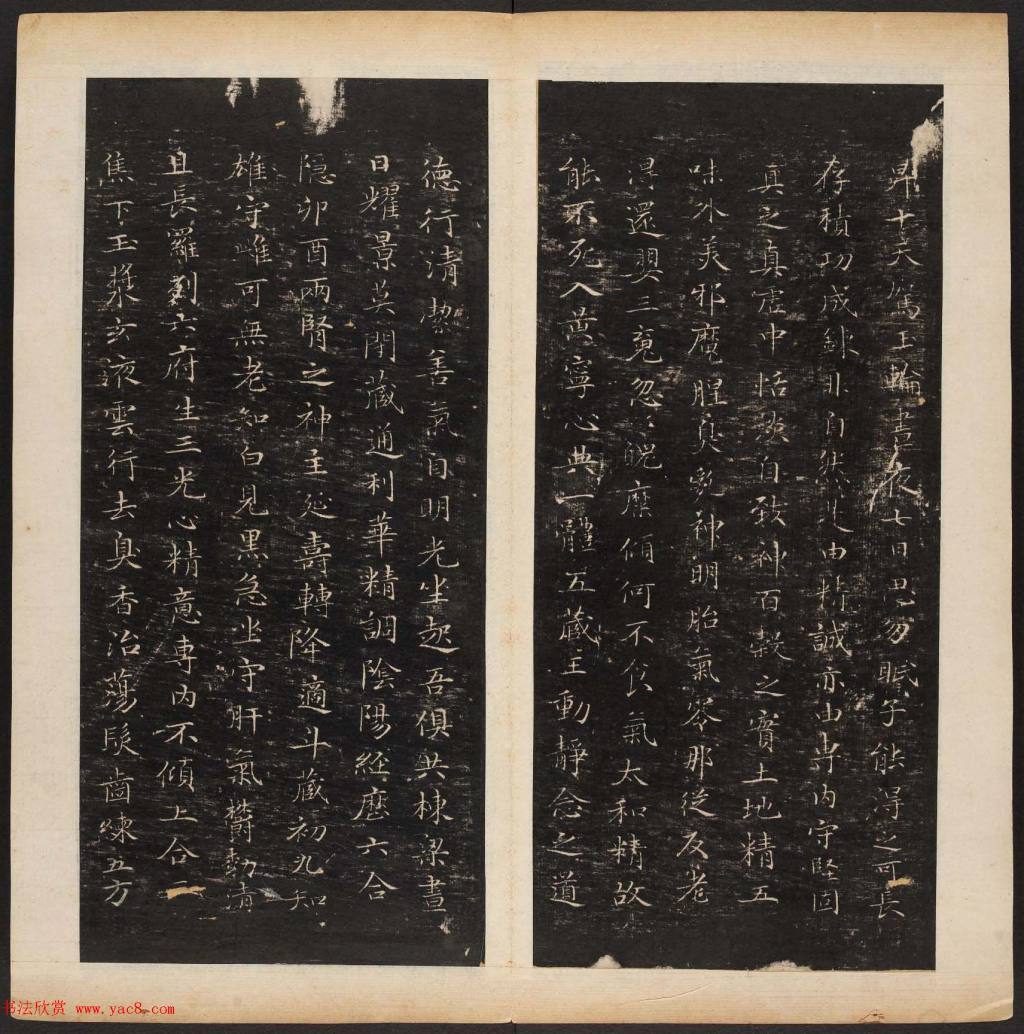 昇十天駕玉輪晝夜七日思勿眠子能淂之可長
存積功成鍊非自然是由精誠亦由專內守堅固
真之真虛中恬淡自致神百穀之實土地精五
味外美邪魔腥臭亂神明胎氣零那従反老
淂還嬰三魂忽〻魄糜傾何不食氣太和精故
能不死入黃寧心典一體五藏主動静念之道
德行清潔善氣自明光坐起吾俱共棟梁晝
日耀景莫閉藏通利華精調陰陽經歷六合
隱卯酉兩腎之神主延壽轉降適斗藏初九知
雄守雌可無老知白見黑急坐守肝氣欝勃清
且長羅列六府生三光心精意專內不傾上合三
焦下玉漿玄液雲行去臭香治蕩髮齒練五方
书法欣赏 www.yac8.com